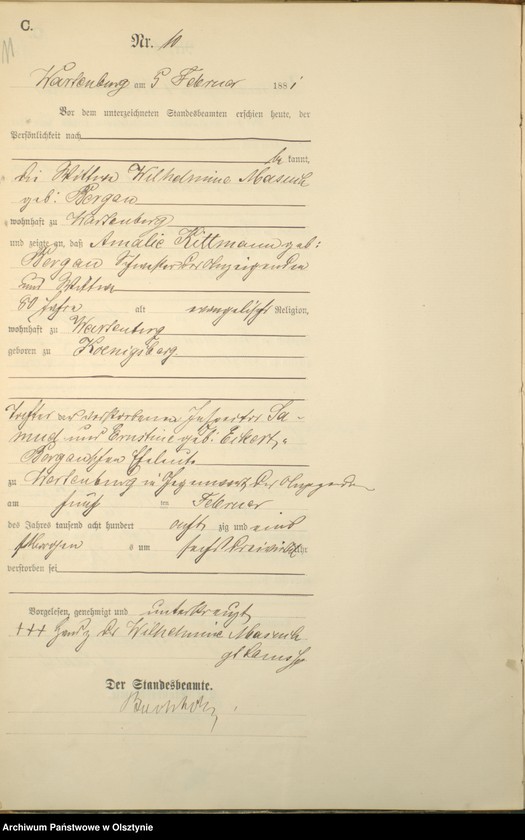 C.
11
Nr. 10
Wartenburg am 5 Februar 1881
Vor dem unterzeichneten Standesbeamten erschien heute, der
Persönlichkeit nach
bekannt,
die Wittwe Wilhelmine
geb: Bergau
wohnhaft zu Wartenburg
und zeigte an, daß Amalie Kittmann geb:
Bergau Schwester der Anzeigenden
und Wittwe
60 Jahre alt evangelischer Religion,
wohnhaft zu Wartenburg
geboren zu Koenigsberg
Tochter der verstorbenen Sa-
muel und Ernstine geb: Eckert,
Bergauschen Eheleute
zu Wartenburg in Gegenwart der Anzeigenden
am fünf ten Februar
des Jahres tausend acht hundert acht zig und eins
Morgens um sechs dreiviertel Uhr
verstorben sei
Vorgelesen, genehmigt und unterkreuzt
+++ Handz. der Wilhelmine
Der Standesbeamte.
Archiwum Państwowe w Olsztynie